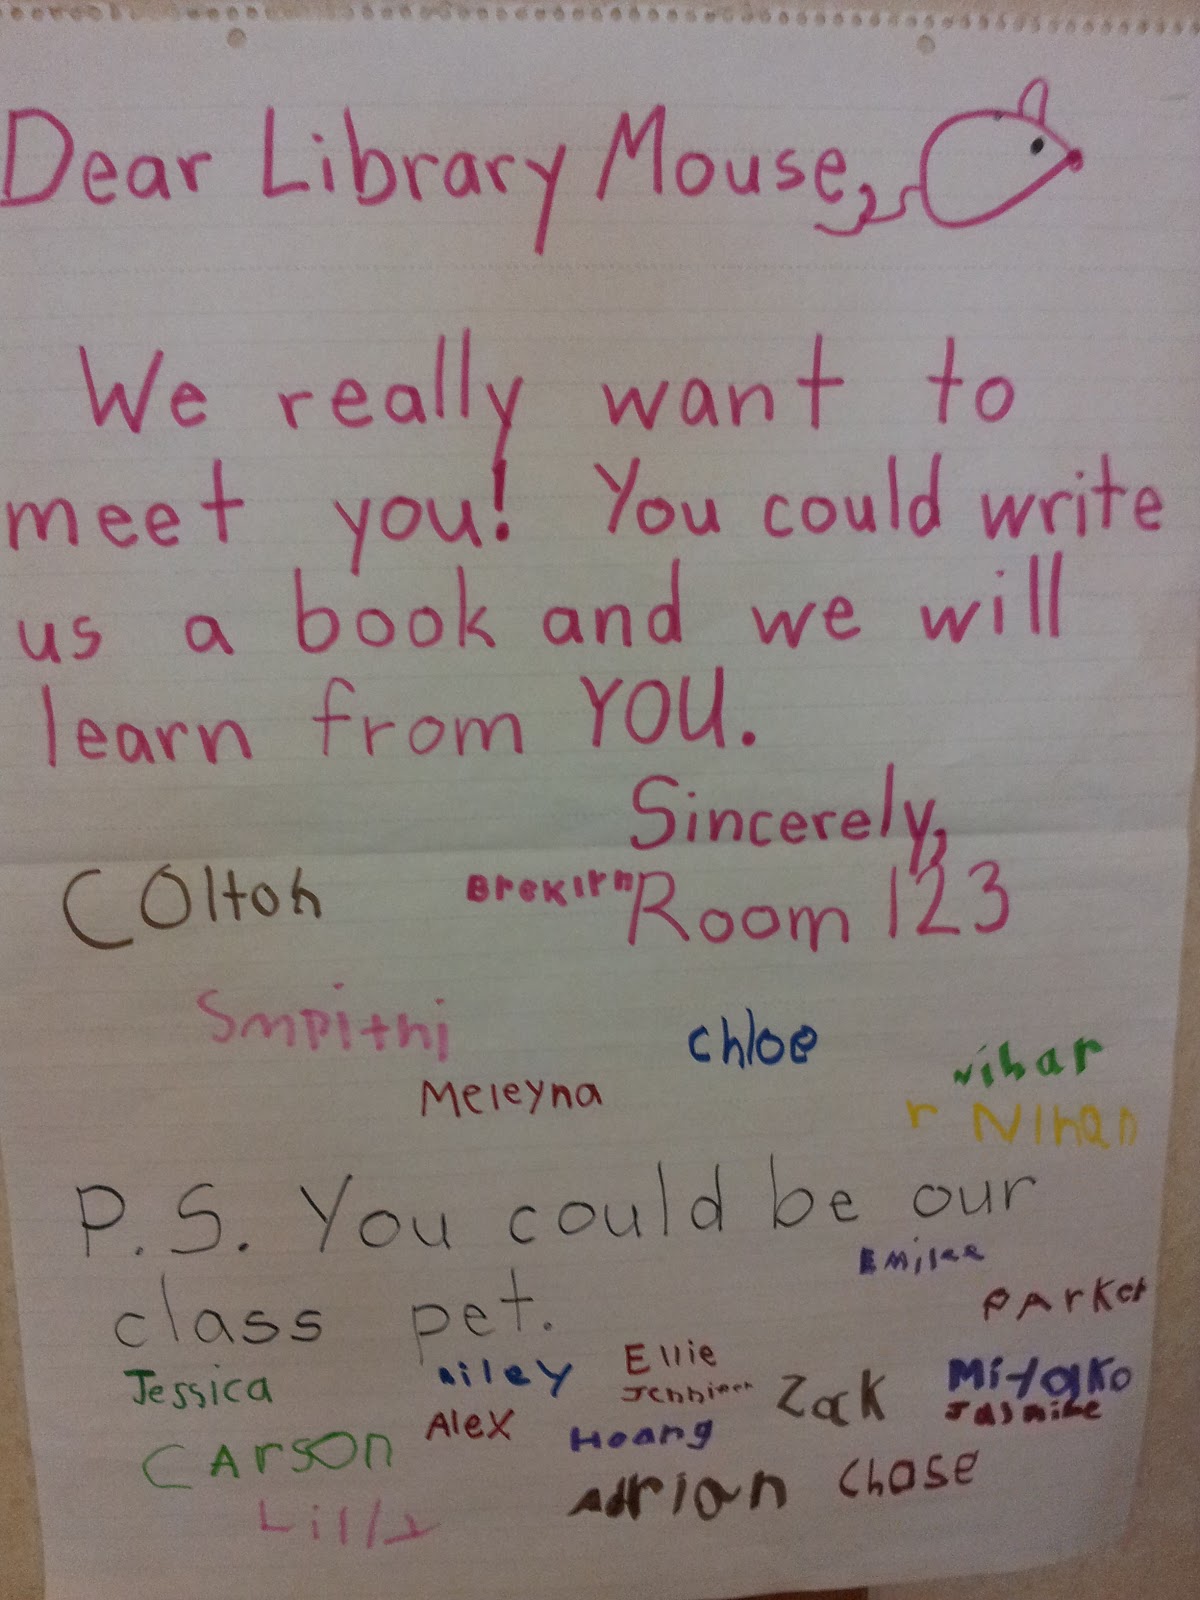 Dear Library Mouse,
We really want to
meet you! You could write
us a book and we will
learn from YOU.
Sincerely,
COlton Breklyn Room 123
Smpithi Chloe
Meleyna Nihar
r Nihan
P.S. You could be our
Emilee
class pet. PArker
Jessica Ellie
Zack Miyako
Alex Jasmine
CArson Hoang
Adrian Chase
Lilly